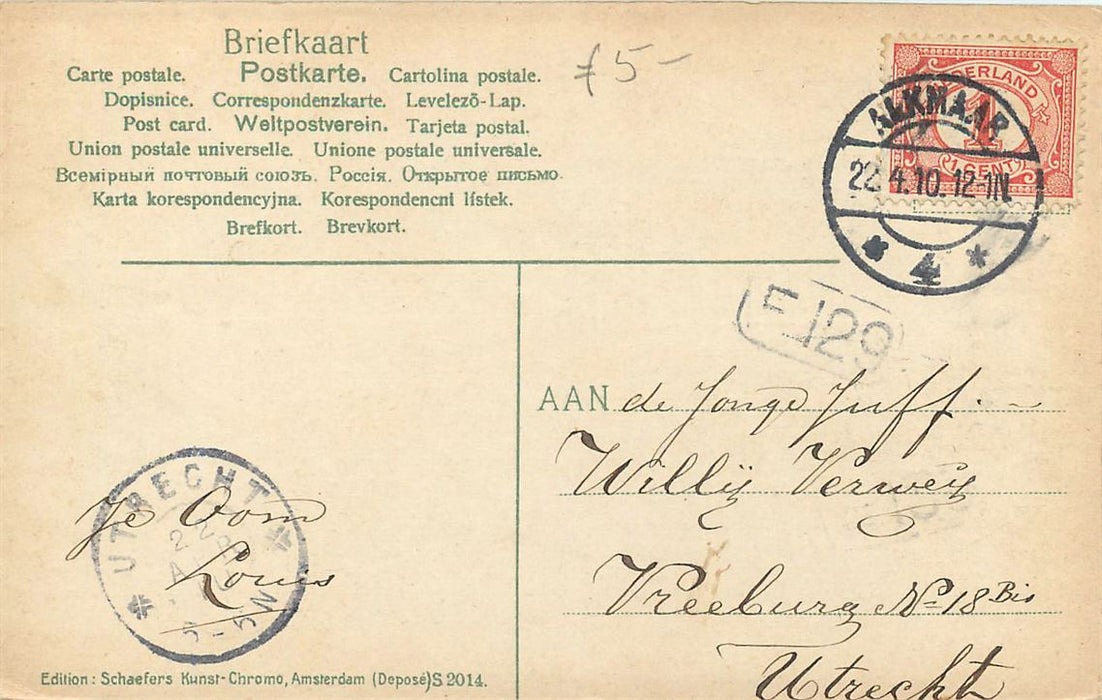 Briefkaart
Carte postale. Postkarte. Cartolina postale.
Dopisnice. Correspondenzkarte. Levelező-Lap.
Post card. Weltpostverein. Tarjeta postal.
Union postale universelle. Unione postale universale.
Всемірный почтовый союзъ. Россія. Открытое письмо.
Karta korespondencyjna. Korespondencni lístek.
Brefkort. Brevkort.
f 5-
NEDERLAND
1
1 CENT
ALKMAAR
22.4.10. 12-1N.
* 4 *
F 129
AAN de Jonge Juff.
Willy Verwey
Vreeburg No 18 Bis
Utrecht
UTRECHT
Je Oom
Louis
Edition: Schaefers Kunst-Chromo, Amsterdam (Deposé) S 2014.